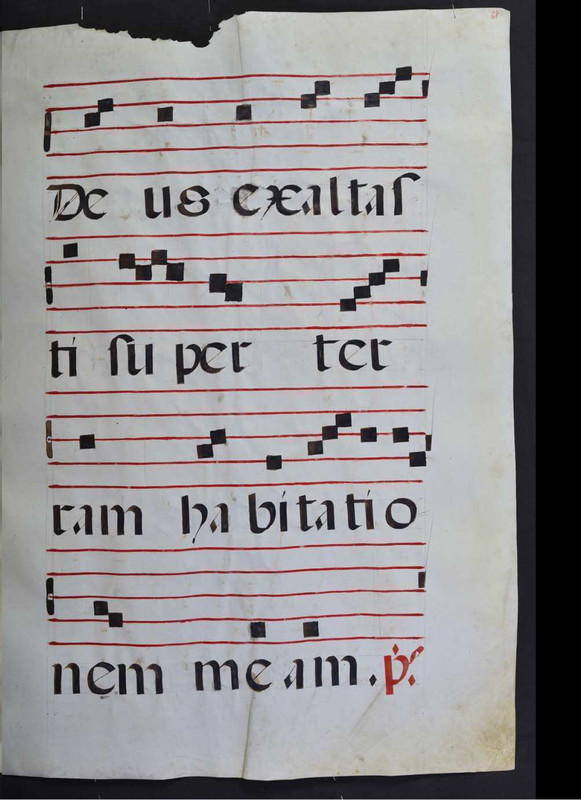 De us exaltaſ
ti ſu per ter
ram ha bitatio
nem me am. p̄s.